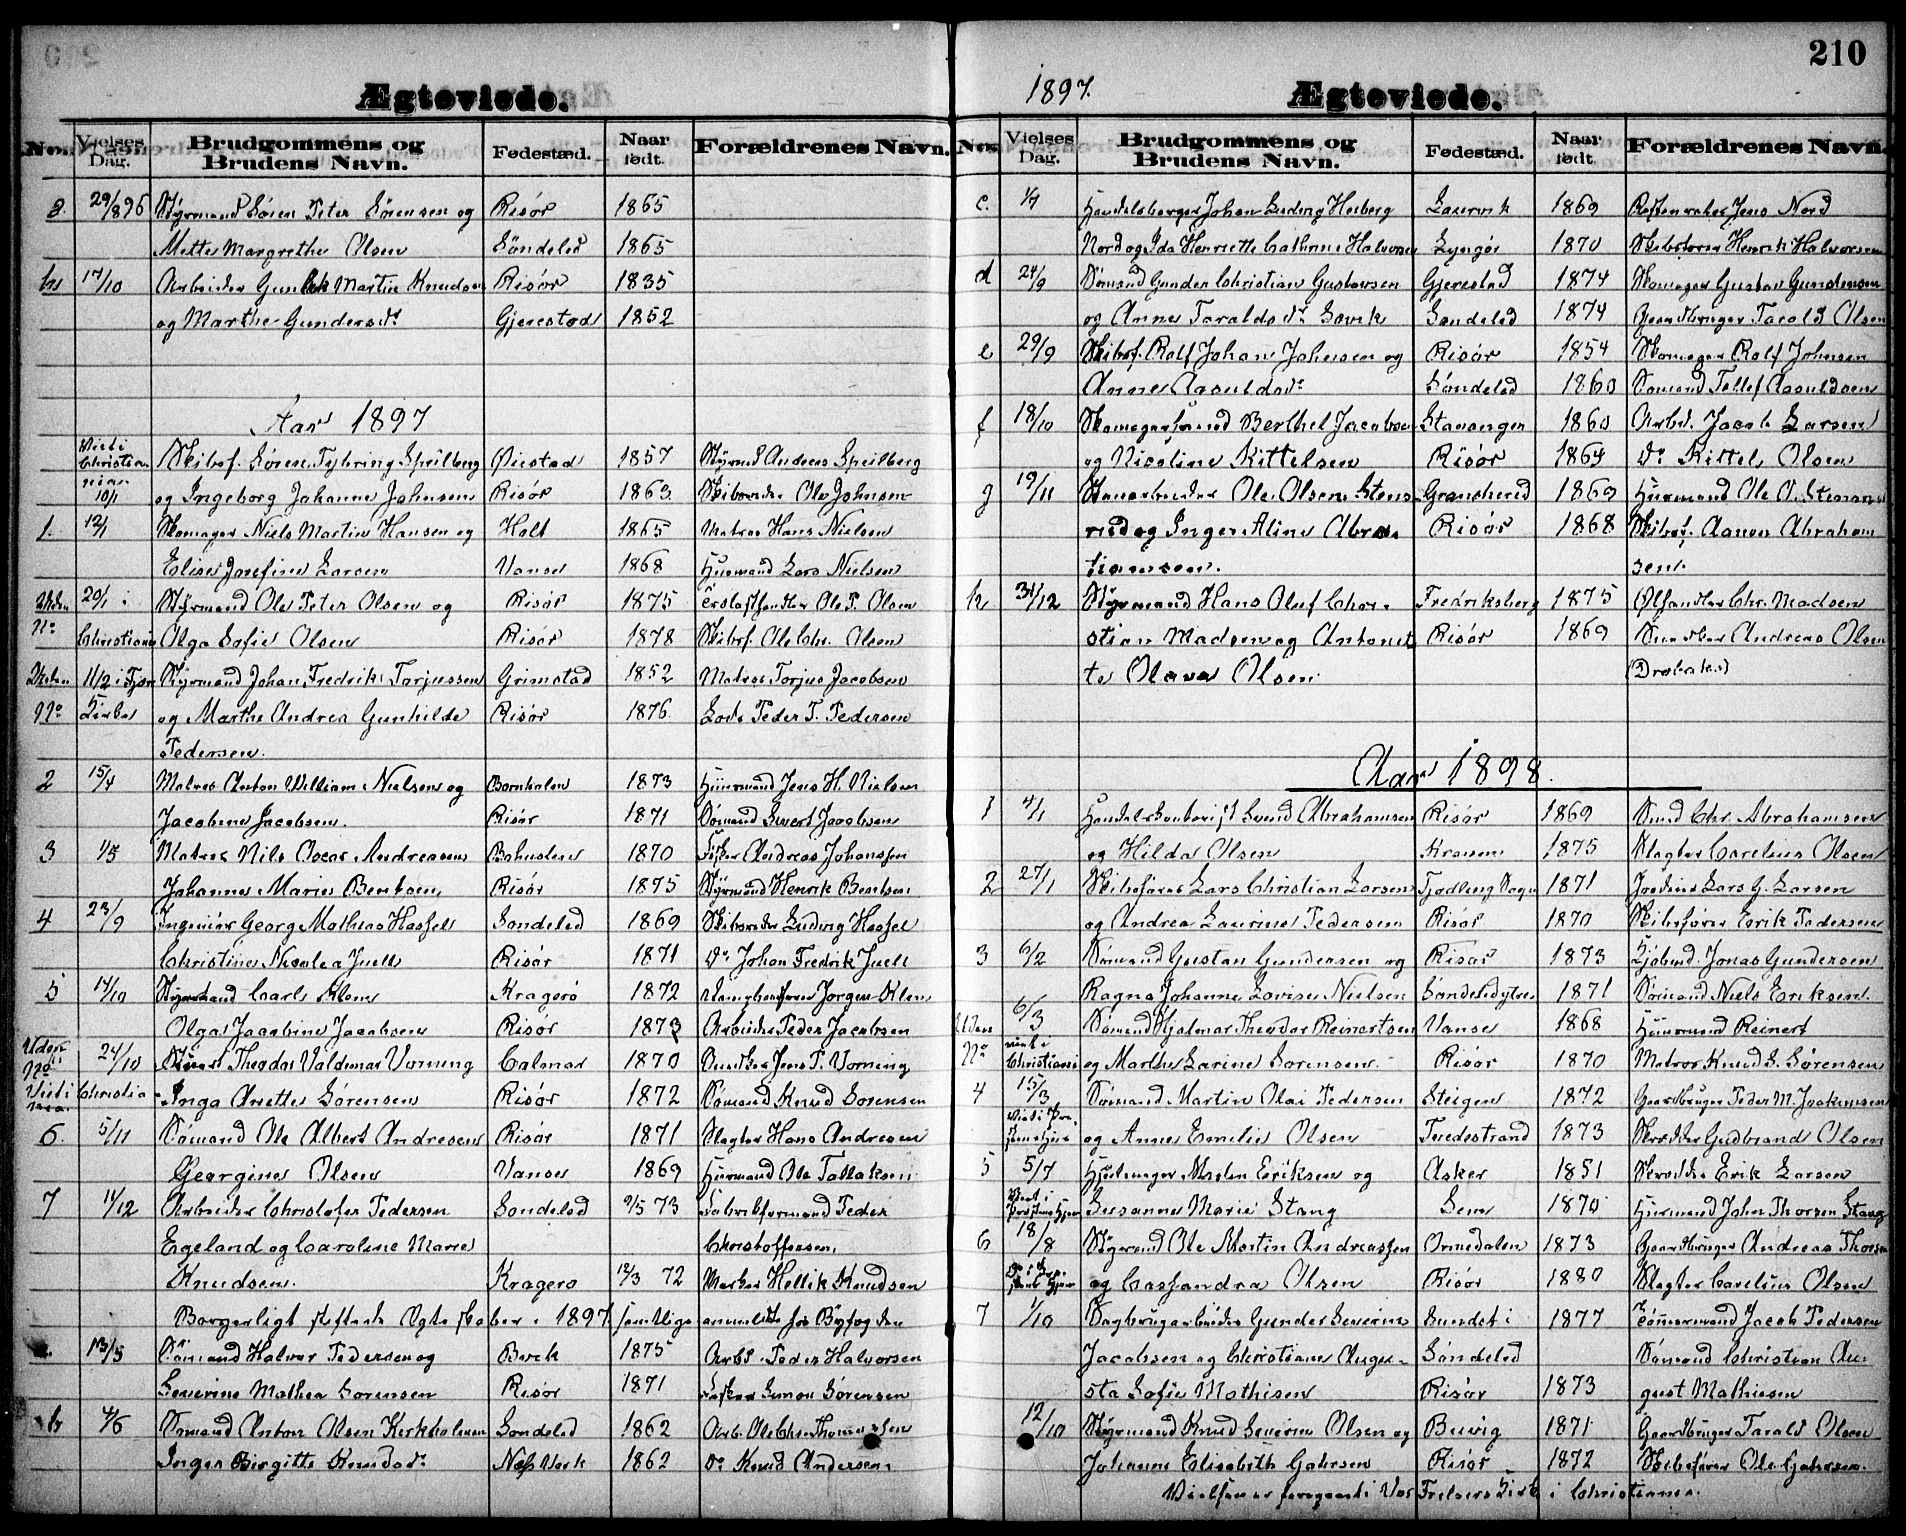 210
Ægteviede.
Nos. Vielses Dag. Brudgommens og Brudens Navn. Fødested. Naar født. Forældrenes Navn.
29/8 96 Styrmand Sören Peter Sörensen og Risör 1865
Mette Margrethe Olsen Söndeled 1865
17/10 Arbeider Martin Knudsen Risör 1835
og Marthe Gundersdr. Gjerestad 1852
Aar 1897
Viet i Christiania 10/1 Skibsf. Sören Tybring Speilberg Öiestad 1857 Styrmd Andreas Speilberg
og Ingeborg Johanne Johnsen Risör 1863 Skibsreder Ole Johnsen
1. 12/1 Skomager Niels Martin Hansen og Holt 1865 Matros Hans Nielsen
Elise Josefine Larsen Vanse 1868 Husmand Lars Nielsen
Uden 20/1 i Styrmand Ole Peter Olsen og Risör 1875 Ole P. Olsen
No Christiania Olga Sofie Olsen Risör 1878 Skibsf. Ole Chr. Olsen
Uden 11/2 i Styrmand Johan Fredrik Torjussen Grimstad 1852 Matros Torjus Jacobsen
No og Marthe Andrea Gunhilde Risör 1876 Lods Peder P. Pedersen
Pedersen.
2 15/4 Matros Anton William Nielsen og Bornholm 1873 Husmand Jens H. Nielsen
Jacobine Jacobsen. Risör 1871 Sömand Sivert Jacobsen
3 1/5 Matros Nils Oscar Andreasen Bohuslen 1870 Fisker Andreas Johansson
Johanne Marie Bentsen Risör 1875 Styrmand Henrik Bentsen
4 23/9 Ingeniör Georg Mathias Hassel Söndeled 1869 Skibsreder Ludvig Hassel
Christine Nicolea Juell Risör 1871 Do Johan Fredrik Juell
5 14/10 Styrmand Carl Klem Kragerö 1872 Jörgen Klem
Olga Jacobine Jacobsen Risör 1873 Arbeider Peder Jacobsen
Uden No 24/10 Theodor Valdemar Vorning Calmar 1870 Jens P. Vorning
Viet i Christiania Inga Anette Sörensen Risör 1872 Sömand Knud Sörensen
6. 5/11 Sömand Ole Albert Andresen Risör 1871 Slagter Hans Andresen
Georgine Olsen Vanse 1869 Husmand Ole Tollaksen
7 11/12 Arbeider Christofer Pedersen Söndeled 2/5 73 Fabrikformand Peder
Egeland og Carolene Marie Christoffersen.
Knudsen. Kragerö 12/3 72 Murker Hellik Knudsen
Borgerligt stiftede Ægteskaber i 1897 samtlige anmeldte for Byfogden
a. 13/5 Sömand Halvor Pedersen og 1875 Arbd. Peder Halvorsen
Severine Mathea Sörensen Risör 1871 Fisker Simon Sörensen
b 4/6 Sömand Anton Olsen Kirkholmen Söndeled 1862 Arb. Ole Chr. Thomassen
Inger Birgitte Knudsdr. Næs Verk 1862 Do Knud Andersen.
1897. Ægteviede.
Nos. Vielses Dag. Brudgommens og Brudens Navn. Fødested. Naar født. Forældrenes Navn.
c. 1/7 Handelsborger Johan Ludvig Heiberg Laurvik 1869 Jens Nord
Nord og Ida Henriette Cathrine Halvorsen Lyngör 1870 Skibsförer Henrik Halvorsen
d 24/9 Sömand Gunder Christian Gustavsen Gjerestad 1874 Skomager Gustav Gundersen
og Anne Taraldsdr. Söndeled 1874 Gaardbruger Tarald Olsen
e 29/9 Skibsf. Rolf Johan Johnsen og Risör 1854 Skomager Rolf Johnsen
Anne Aasuldsdr. Söndeled 1860 Sömand Tellef Aasuldsen
f 18/10 Skomagersvend Berthel Jacobsen Stavanger 1860 Arbd. Jacob Larsen
og Nicoline Kittelsen Risör 1864 Do Kittel Olsen
g 19/11 Stenarbeider Ole Olsen Stens- Gransherad 1869 Husmand Ole O. Stensrud
rud og Inger Aline Abra- Risör 1868 Skibsf. Aanon Abraham
hamsen. sen.
h 31/12 Styrmand Hans Oluf Chri- Fredriksberg 1875 Ölhandler Chr. Madsen
stian Madsen og Antonet Risör 1869 Snedker Andreas Olsen
te Olava Olsen.
Aar 1898.
1 4/1 Handelskontorist Svend Abrahamsen Risör 1869 Smed Chr. Abrahamsen
og Hilda Olsen 1875 Slagter Carelius Olsen
2 27/1 Skibsförer Lars Christian Larsen 1871 Lars G. Larsen
og Andrea Laurine Pedersen Risör 1870 Skibsförer Erik Pedersen
3 6/2 Sömand Gustav Gundersen og Risör 1873 Jonas Gundersen
Ragna Johanne Lovise Nielsen 1871 Sömand Niels Eriksen.
Uden 6/3 Sömand Hjalmar Theodor Reinertsen Vanse 1868 Husmand Reinert
No viet i Christiania og Marthe Larine Sörensen. Risör 1870 Matros Knud S. Sörensen
4 15/3 Sömand Martin Olai Pedersen Steigen 1872 Gaardbruger Peder M. Joakimsen
og Anne Emilie Olsen Tvedestrand 1873 Skrædder Gudbrand Olsen
5 5/7 Hjulmager Martin Eriksen og Asker 1851 Skrædder Erik Larsen
Susanne Marie Stang Sem 1870 Husmand John Thorsen Stang
6 18/8 Styrmand Ole Martin Andreassen Ormedalen 1873 Gaardbruger Andreas Thorsen
og Cassandra Olsen Risör 1880 Slagter Carelius Olsen
7 1/10 Sagbrugarbeider Gunder Severin Sundet i 1877 Tömmermand Jacob Pedersen
Jacobsen og Christiane Augu- Söndeled Sömand Christian Au-
sta Sofie Mathisen Risör 1873 gust Mathiesen
12/10 Styrmand Knud Severin Olsen og Buvig 1871 Gaardbruger Tarald Olsen
Johanne Elisabeth Gahrsen Risör 1872 Skibsförer Ole Gahrsen.
Vielsen er foregaaet i Vor Frelsers Kirke i Christiania.